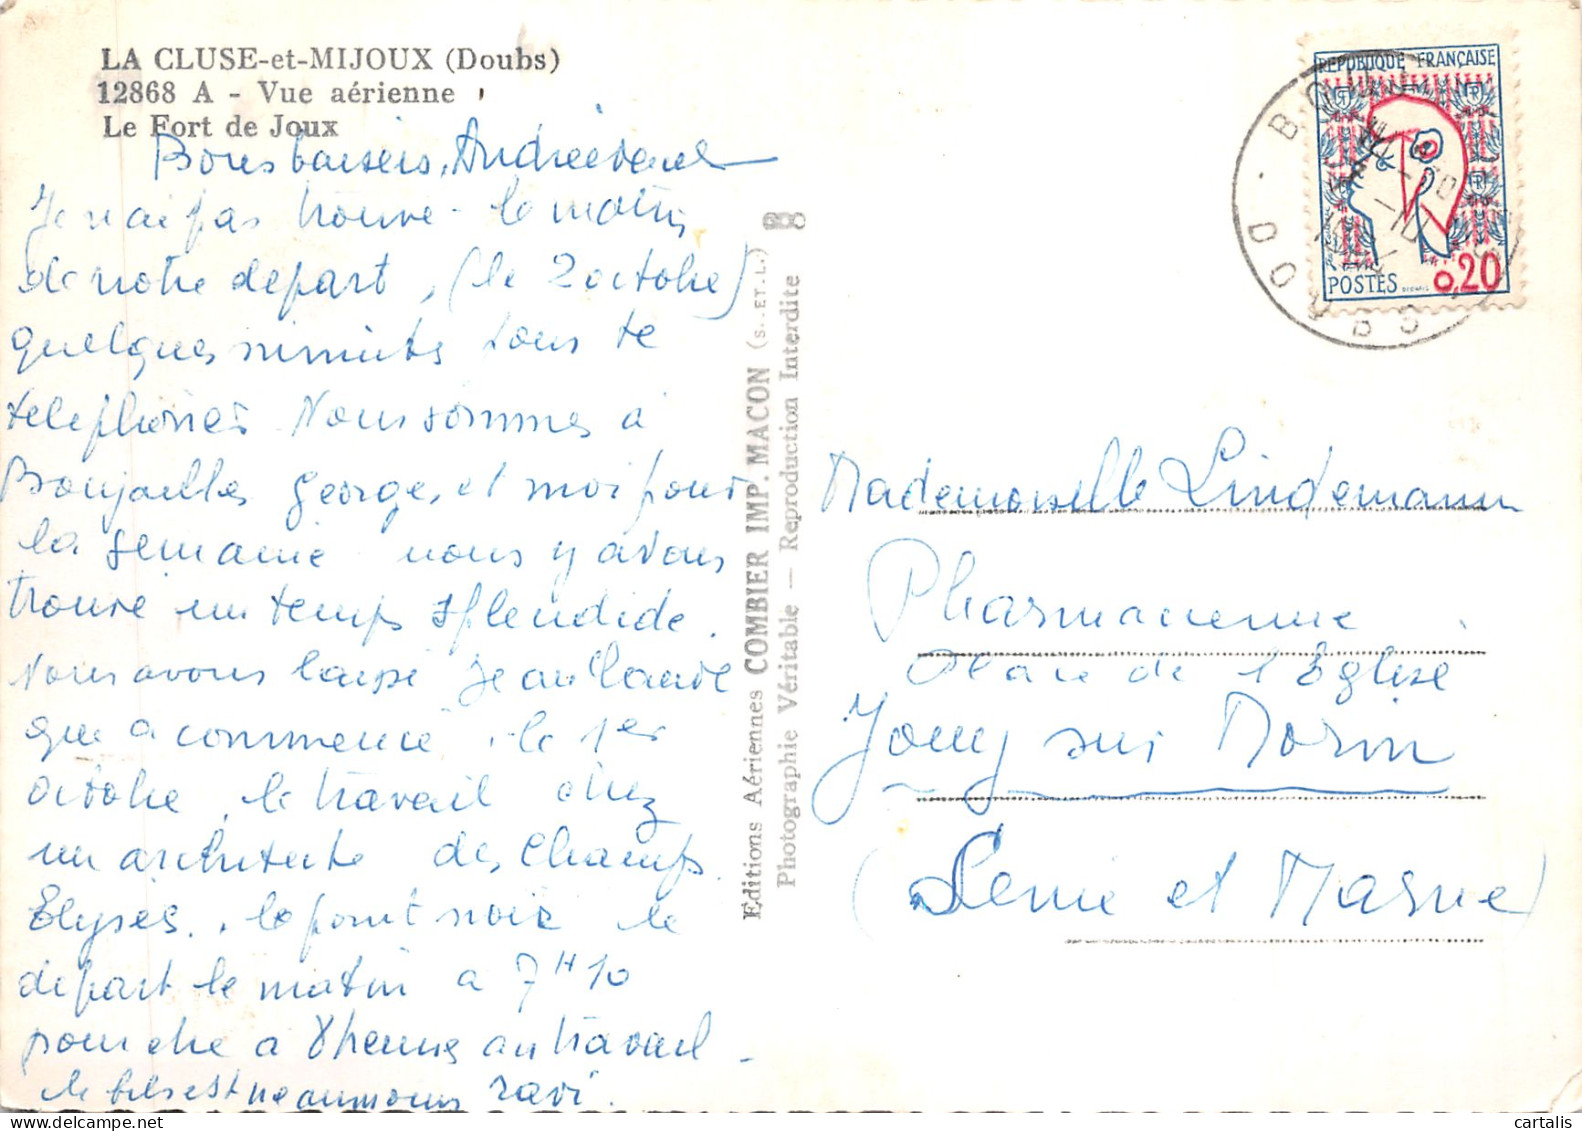 LA CLUSE-et-MIJOUX (Doubs)
12868 A - Vue aérienne
Le Fort de Joux
Bons baisers, Andrée
Je n'ai pas trouvé le matin
de notre depart, (le 2 octobre)
quelques minutes pour te
telephoner Nous sommes à
Boujailles George, et moi pour
la semaine nous y avons
trouvé un temps splendide.
Nous avons laissé Jean Claude
qui a commencé, le 1er
octobre, le travail chez
un architecte des Champs
Elysées. le point noir le
depart le matin a 7H10
pour etre a 8 heures au travail -
le fils est neanmoins ravi.
Editions Aériennes COMBIER IMP. MACON (S.-ET-L.)
Photographie Véritable — Reproduction Interdite
REPUBLIQUE FRANÇAISE
POSTES
0,20
DOUBS
Mademoiselle Lindemann
Pharmacienne
Place de l'Eglise
Jouy sur Morin
(Seine et Marne)
cartalis